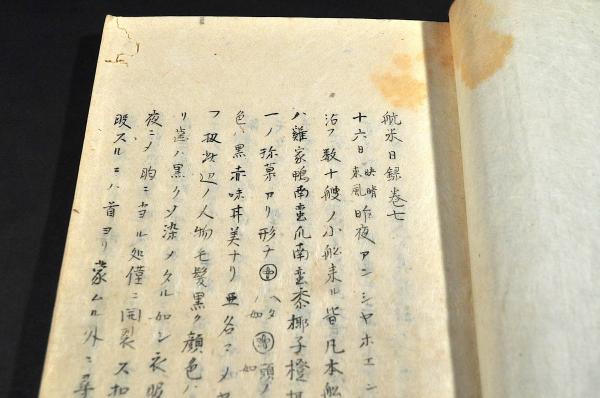 航米日録巻七
十六日 快晴 東風 昨夜アンシヤホエン
沽フ数十艘ノ小舩来ル皆凡本舩
ハ雞家鴨南蛮瓜南蛮黍椰子橙柑
一ノ珎菓アリ形チ ヘタ ノ如 頭ノ 如
色ハ黒赤味甘美ナリ亜名マメヤ
フ扨此辺ノ人物毛髪黒ク顔色ハ
リ歯ノ黒クソ染メタル如シ衣服
夜ニメ胸ニ当ル処僅ニ開裂ス扣
脱スルニハ首ヨリ蒙ムル外ニ尋